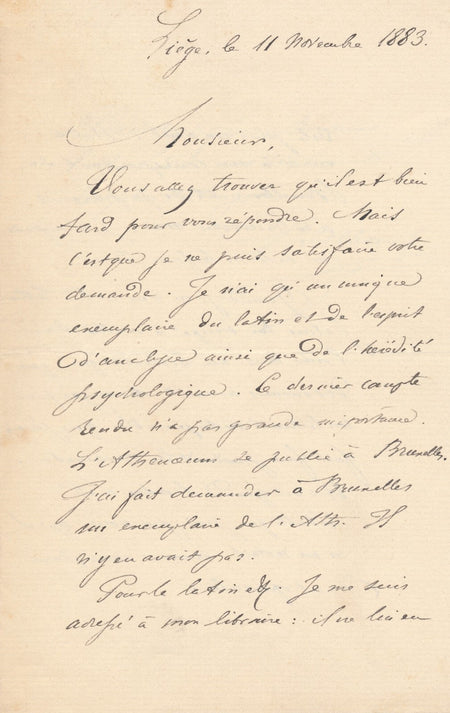 Liége, le 11 Novembre 1883.
Monsieur,
Vous allez trouver qu'il est bien
tard pour vous répondre. Mais
c'est que je ne puis satisfaire votre
demande. Je n'ai qu'un unique
exemplaire du latin et de l'esprit
d'analyse ainsi que de l'hérédité
psychologique. Ce dernier compte
rendu n'a pas grande importance.
L'Athenœum se publie à Bruxelles.
J'ai fait demander à Bruxelles
un exemplaire de l'Ath. Il
n'y en avait pas.
Pour le latin etc. Je me suis
adressé à mon libraire : il ne lui en